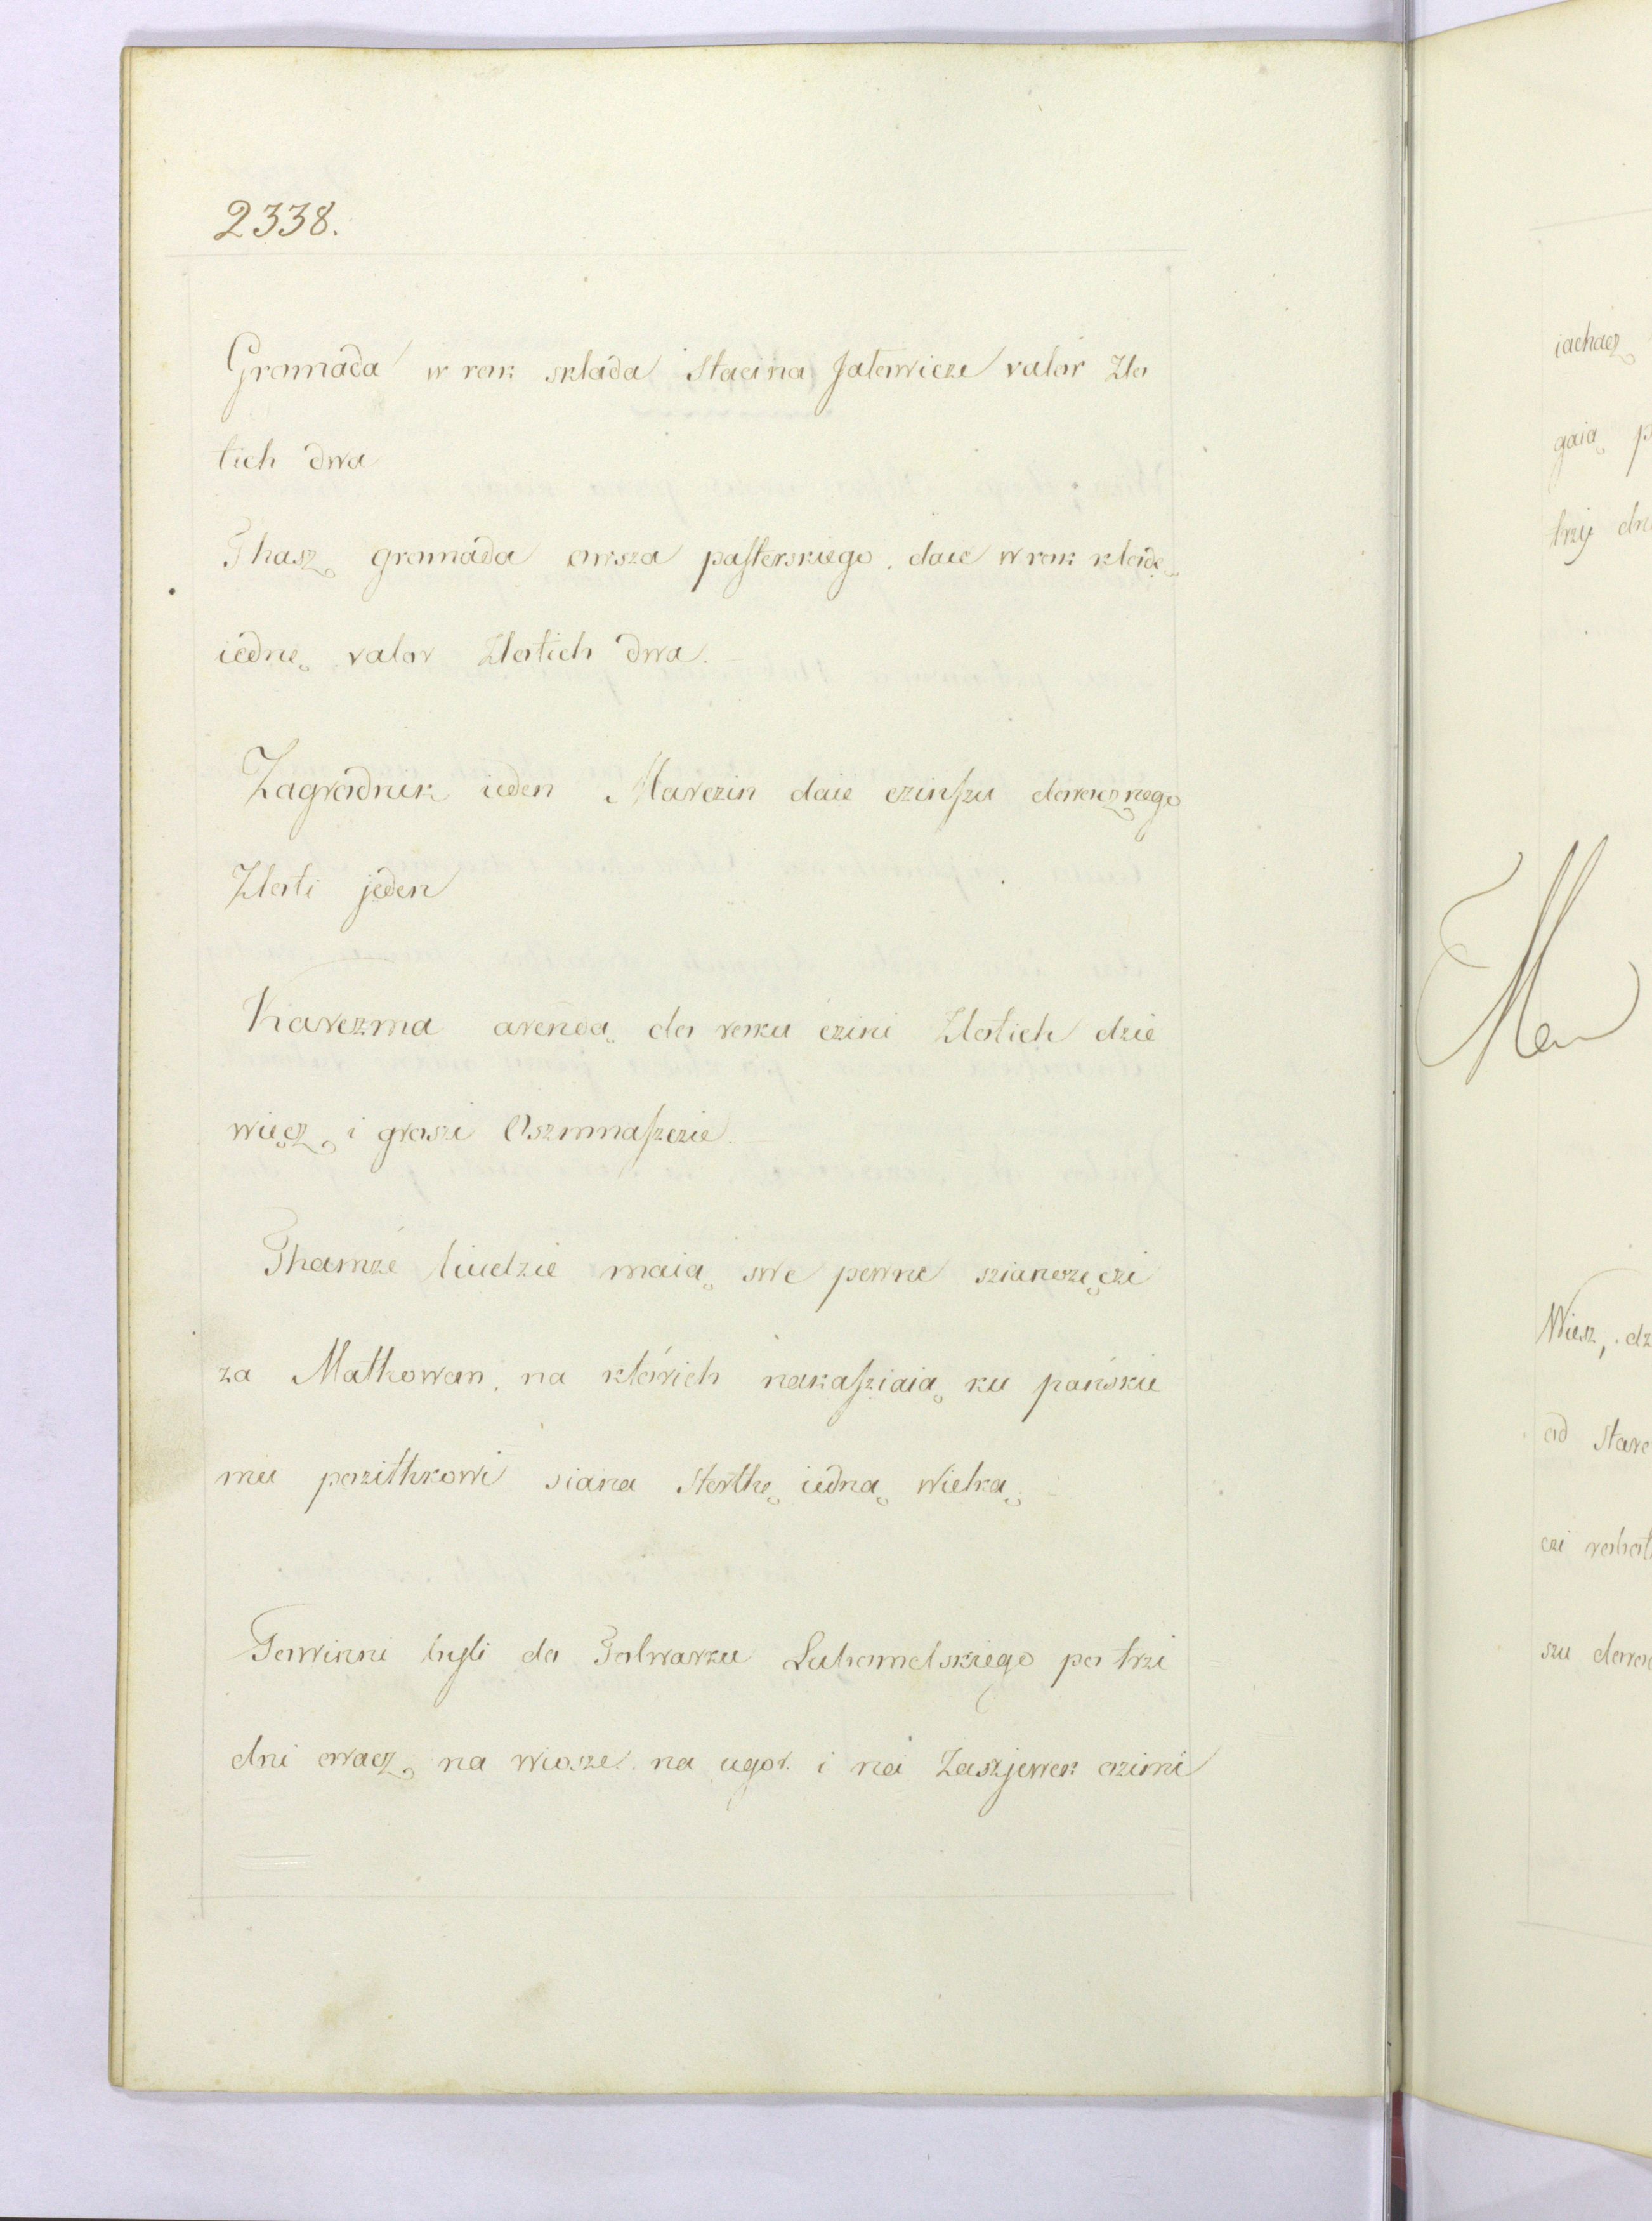 2338.
Gromada w rok składa Staciną Jałowicze valor Zło
tich dwa
Thasz gromada owsza pasterskiego daie w rok kłodę
iednę valor Złotich dwa.
Zagrodnik ieden Marczin daie czinszu dorocznego
Złoti jeden
Karczma arendą do roku czini Złotich dzie
więcz i groszi Oszmnaszczie.
Thamże liudzie maią swe pewne szianorzęczi
za Małkowem, na których nakasziaią ku pańskie
mu pozithkowi siana sterthę iedną wielką
Powinni byli do Folwarku Luhomelskiego po trzi
dni oracz na wiosze, na ugor i na Zaszjewek ozimi
iachacz
gaią p
trzy dn
Wiesz, dz
od Staro
szu doro